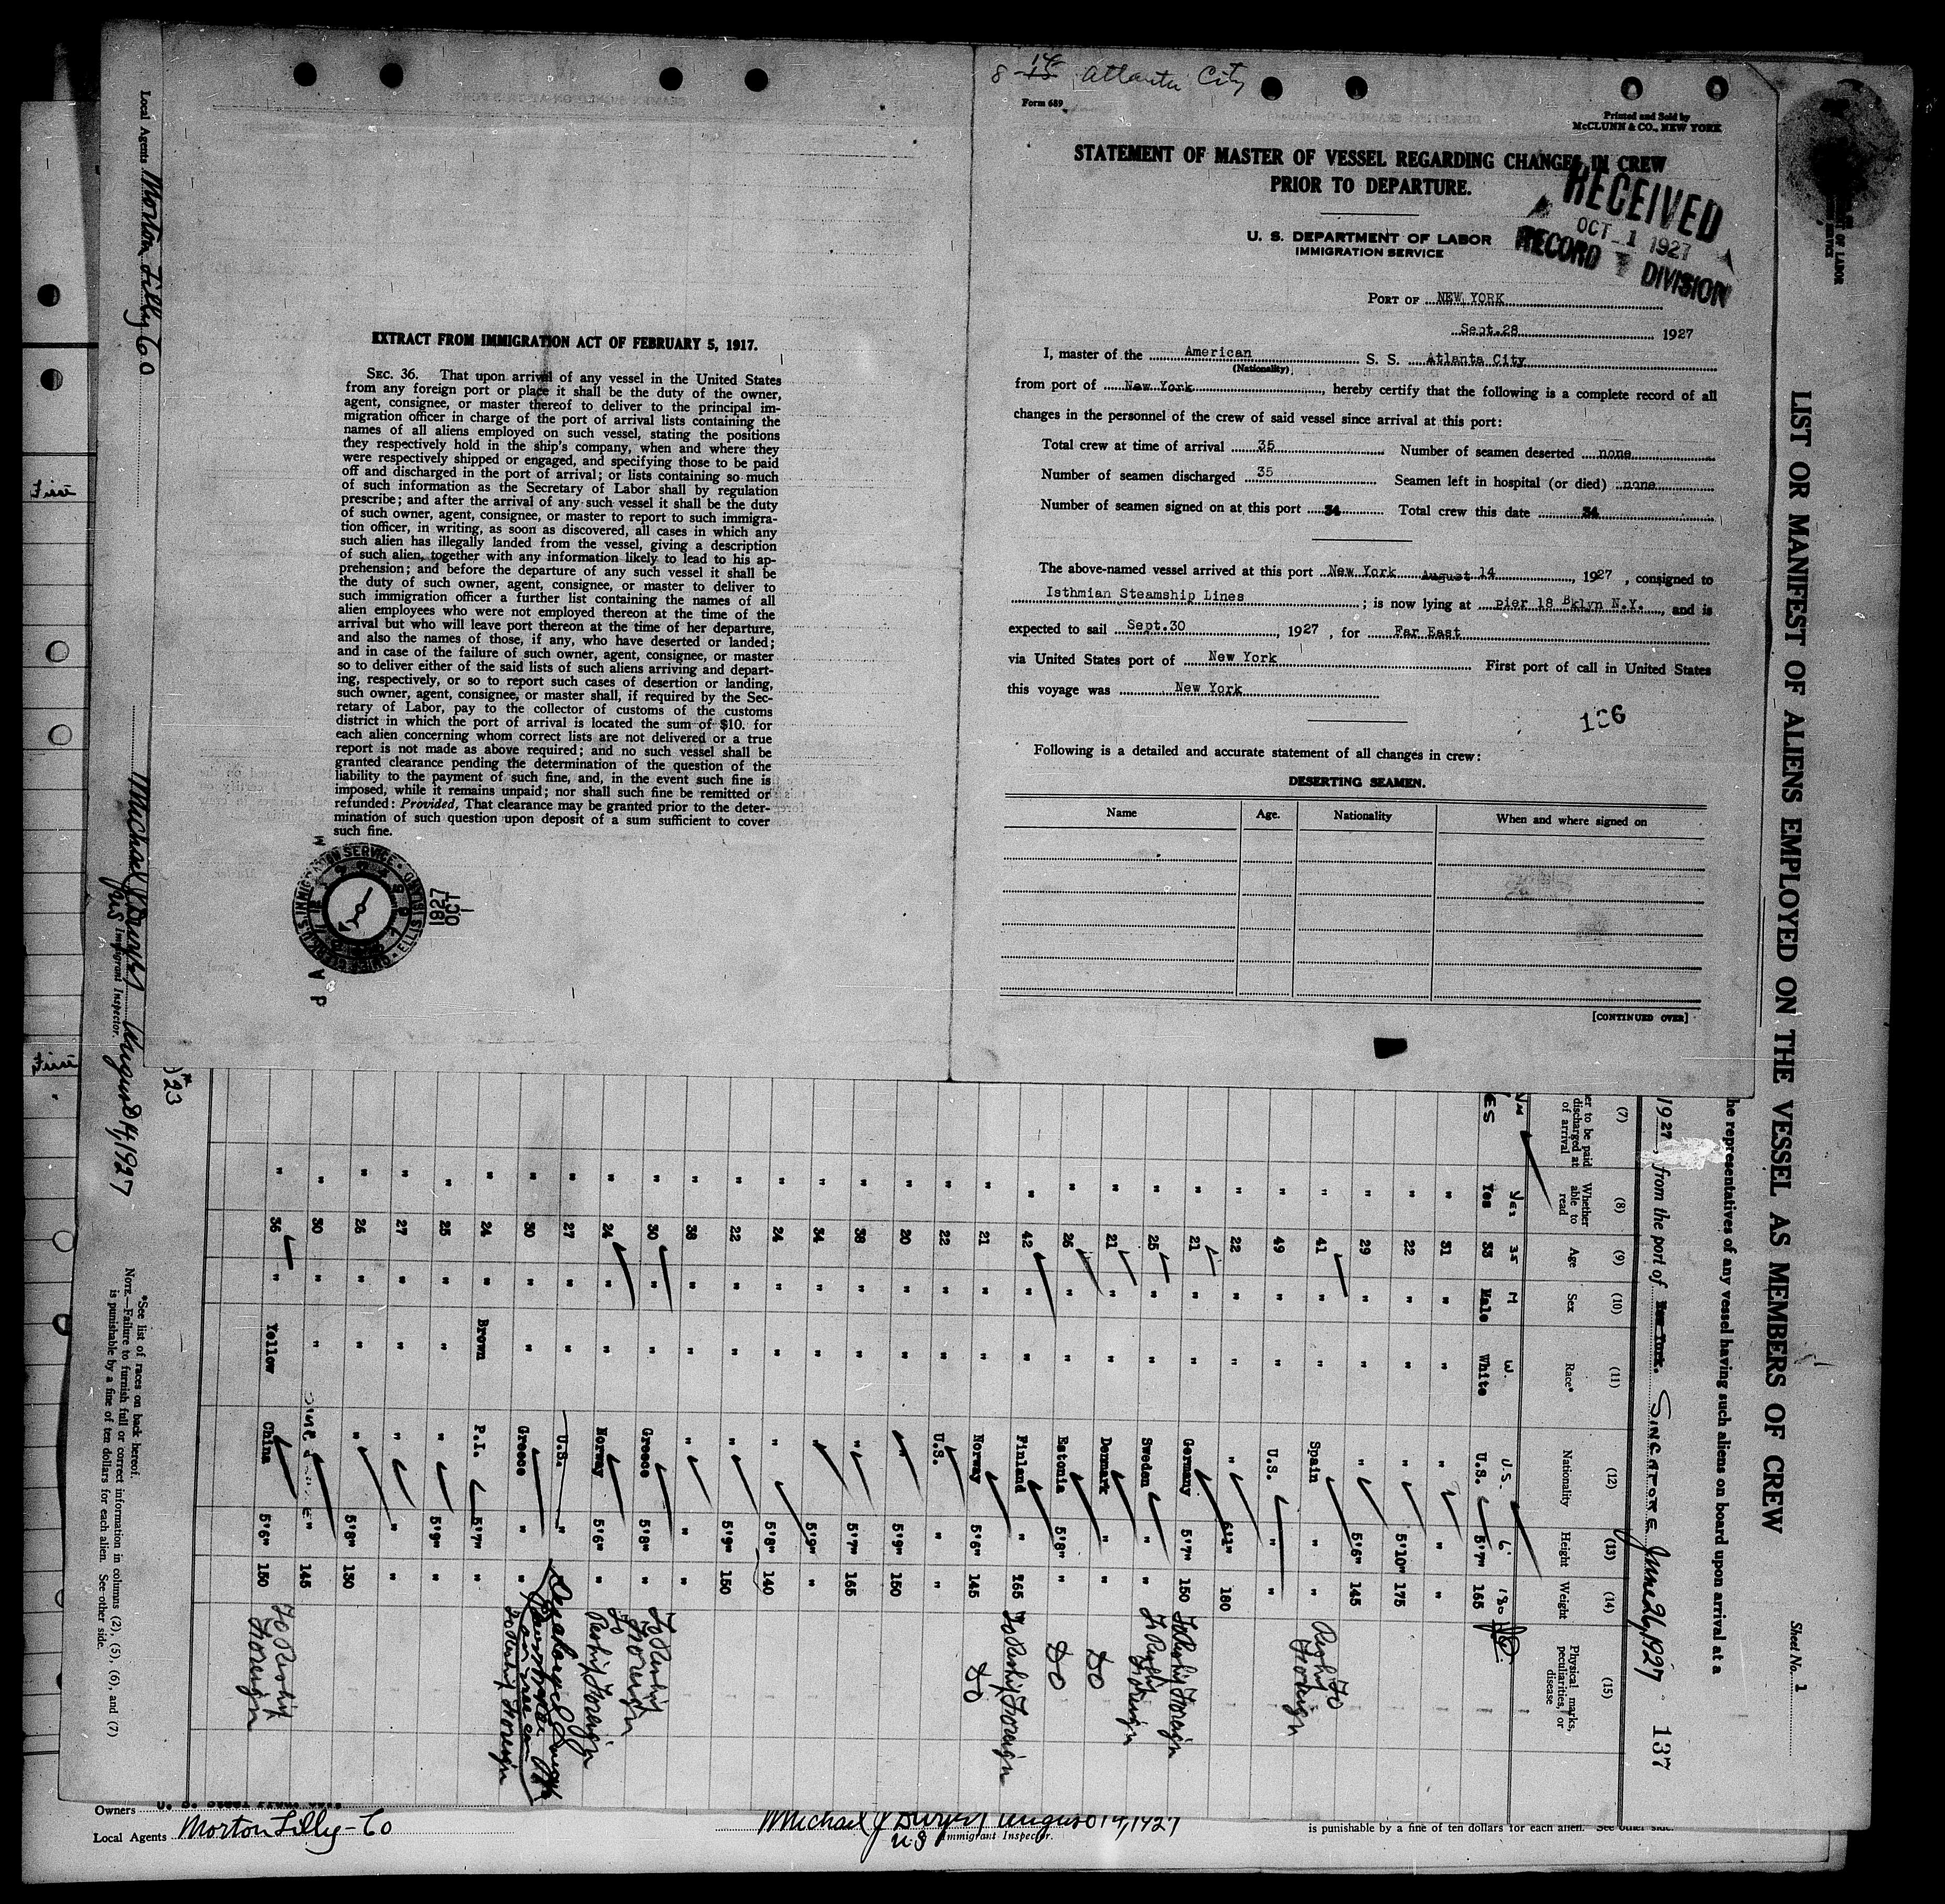 8-14 Atlanta City
Form 689
Printed and Sold by
McCLUNN & CO., NEW YORK
STATEMENT OF MASTER OF VESSEL REGARDING CHANGES IN CREW
PRIOR TO DEPARTURE.
RECEIVED
OCT 1 1927
RECORD DIVISION
U. S. DEPARTMENT OF LABOR
IMMIGRATION SERVICE
PORT OF NEW YORK
Sept.28 1927
I, master of the American S. S. Atlanta City
(Nationality)
from port of New York, hereby certify that the following is a complete record of all
changes in the personnel of the crew of said vessel since arrival at this port:
Total crew at time of arrival 35 Number of seamen deserted none
Number of seamen discharged 35 Seamen left in hospital (or died) none
Number of seamen signed on at this port 34 Total crew this date 34
The above-named vessel arrived at this port New York August 14, 1927, consigned to
Isthmian Steamship Lines; is now lying at pier 18 Bklyn N.Y., and is
expected to sail Sept.30, 1927, for Far East
via United States port of New York First port of call in United States
this voyage was New York
Following is a detailed and accurate statement of all changes in crew:
DESERTING SEAMEN.
Name Age. Nationality When and where signed on
[CONTINUED OVER]
EXTRACT FROM IMMIGRATION ACT OF FEBRUARY 5, 1917.
SEC. 36. That upon arrival of any vessel in the United States
from any foreign port or place it shall be the duty of the owner,
agent, consignee, or master thereof to deliver to the principal im-
migration officer in charge of the port of arrival lists containing the
names of all aliens employed on such vessel, stating the positions
they respectively hold in the ship's company, when and where they
were respectively shipped or engaged, and specifying those to be paid
off and discharged in the port of arrival; or lists containing so much
of such information as the Secretary of Labor shall by regulation
prescribe; and after the arrival of any such vessel it shall be the duty
of such owner, agent, consignee, or master to report to such immigra-
tion officer, in writing, as soon as discovered, all cases in which any
such alien has illegally landed from the vessel, giving a description
of such alien, together with any information likely to lead to his ap-
prehension; and before the departure of any such vessel it shall be
the duty of such owner, agent, consignee, or master to deliver to
such immigration officer a further list containing the names of all
alien employees who were not employed thereon at the time of the
arrival but who will leave port thereon at the time of her departure,
and also the names of those, if any, who have deserted or landed;
and in case of the failure of such owner, agent, consignee, or master
so to deliver either of the said lists of such aliens arriving and depart-
ing, respectively, or so to report such cases of desertion or landing,
such owner, agent, consignee, or master shall, if required by the Sec-
retary of Labor, pay to the collector of customs of the customs
district in which the port of arrival is located the sum of $10. for
each alien concerning whom correct lists are not delivered or a true
report is not made as above required; and no such vessel shall be
granted clearance pending the determination of the question of the
liability to the payment of such fine, and, in the event such fine is
imposed, while it remains unpaid; nor shall such fine be remitted or
refunded: Provided, That clearance may be granted prior to the deter-
mination of such question upon deposit of a sum sufficient to cover
such fine.
1927
OCT
LIST OR MANIFEST OF ALIENS EMPLOYED ON THE VESSEL AS MEMBERS OF CREW
Sheet No. 1
the representatives of any vessel having such aliens on board upon arrival at a
1927, from the port of New York. SINGAPORE June 26, 1927 137
(7) (8) (9) (10) (11) (12) (13) (14) (15)
Whether able to read Age Sex Race* Nationality Height Weight Physical marks, peculiarities, or disease
Yes 35 M W. U.S. 6' 180
Yes 33 Male White U.S. 5'7" 165
" 31 " " " " "
" 22 " " " 5'10" 175
" 29 " " " 5'6" 145
" 41 " " Spain " " To Reship Foreign
" 49 " " U.S. " "
" 22 " " " 6'1" 180
" 21 " " Germany 5'7" 150 To Reship Foreign
" 25 " " Sweden " " To Reship Foreign
" 21 " " Denmark " " Do
" 26 " " Estonia 5'8" " Do
" 42 " " Finland " 165 To Reship Foreign
" 21 " " Norway 5'6" 145 Do
" 22 " " U.S. " "
" 20 " " " 5'9" 150
" 38 " " " 5'7" 165
" 34 " " " 5'9" "
" 24 " " " 5'8" 140
" 22 " " " 5'9" 150
" 38 " " " " "
" 30 " " Greece 5'8" " To Reship Foreign
" 24 " " Norway 5'6" " To Reship Foreign
" 27 " " U.S. " "
" 30 " " Greece " " To Reship Foreign
" 24 " Brown P.I. 5'7" "
" 25 " " " 5'9" "
" 27 " " " " "
" 26 " " " 5'8" 130
" 30 " " " 145
" 35 " Yellow China 5'6" 150 To Reship Foreign
*See list of races on back hereof.
NOTE.—Failure to furnish full or correct information in columns (2), (5), (6), and (7)
is punishable by a fine of ten dollars for each alien. See other side.
Local Agents Morton Lilly Co
Michael J Dwyer August 14, 1927
US Immigrant Inspector.
First
First
Owners
Local Agents Morton Lilly-Co
Michael J Dwyer August 14, 1927
US Immigrant Inspector.
is punishable by a fine of ten dollars for each alien. See other side.